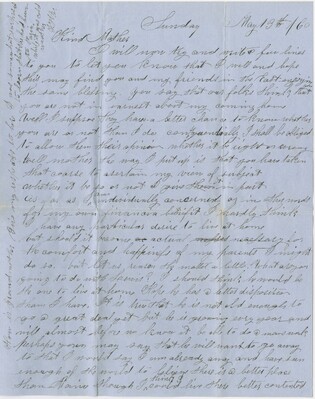 Sunday May 13th/60
Kind Mother
I will now try and write a few lines
to you to let you know that I am well and hope
this may find you and my friends in the East enjoying
the same blessing. You say that our folks think that
you are not in earnest about my coming home
Well I suppose they have a better chance to know whether
you are or not than I do consequently I shall be obliged
to allow them their opinion whether it be right or wrong
Well mother the way I put up is that you have taken
that course to ascertain my view of subject
whether it be so or not I give them in part
as far as I individually am concerned or in other words
for my own financial benefit I hardly think
I have any particular desire to live at home
but should it become actual necessary for
the comfort and happiness of my parents I might
do so. but let us reason the matter a little. What are you
going to do with Theodore? I should think he would be
the one to live at home. He has a better disposition
than I have. It is true that he is not old enough to
do a great deal yet but he is growing every year and
will almost before we know it be able to do a mans work
perhaps you may say that he will want to go away
to that I would say I am already away and have seen
enough of the world to believe there is a better place
than Maine though I could live there better contented